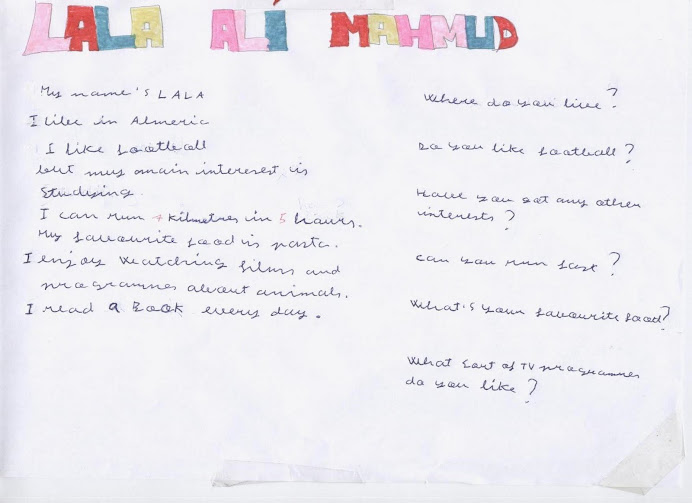 LALA ALI MAHMUD
My name's LALA
I live in Almeria
I like football
but my main interest is
studying.
I can run 7 Kilmetres in 5 hours.
My favourite food is pasta.
I enjoy watching films and
programmes about animals.
I read a Book every day.
Where do you live?
Do you like football?
Have you got any other
interests?
can you run fast?
What's your favourite food?
What sort of TV programmes
do you like?